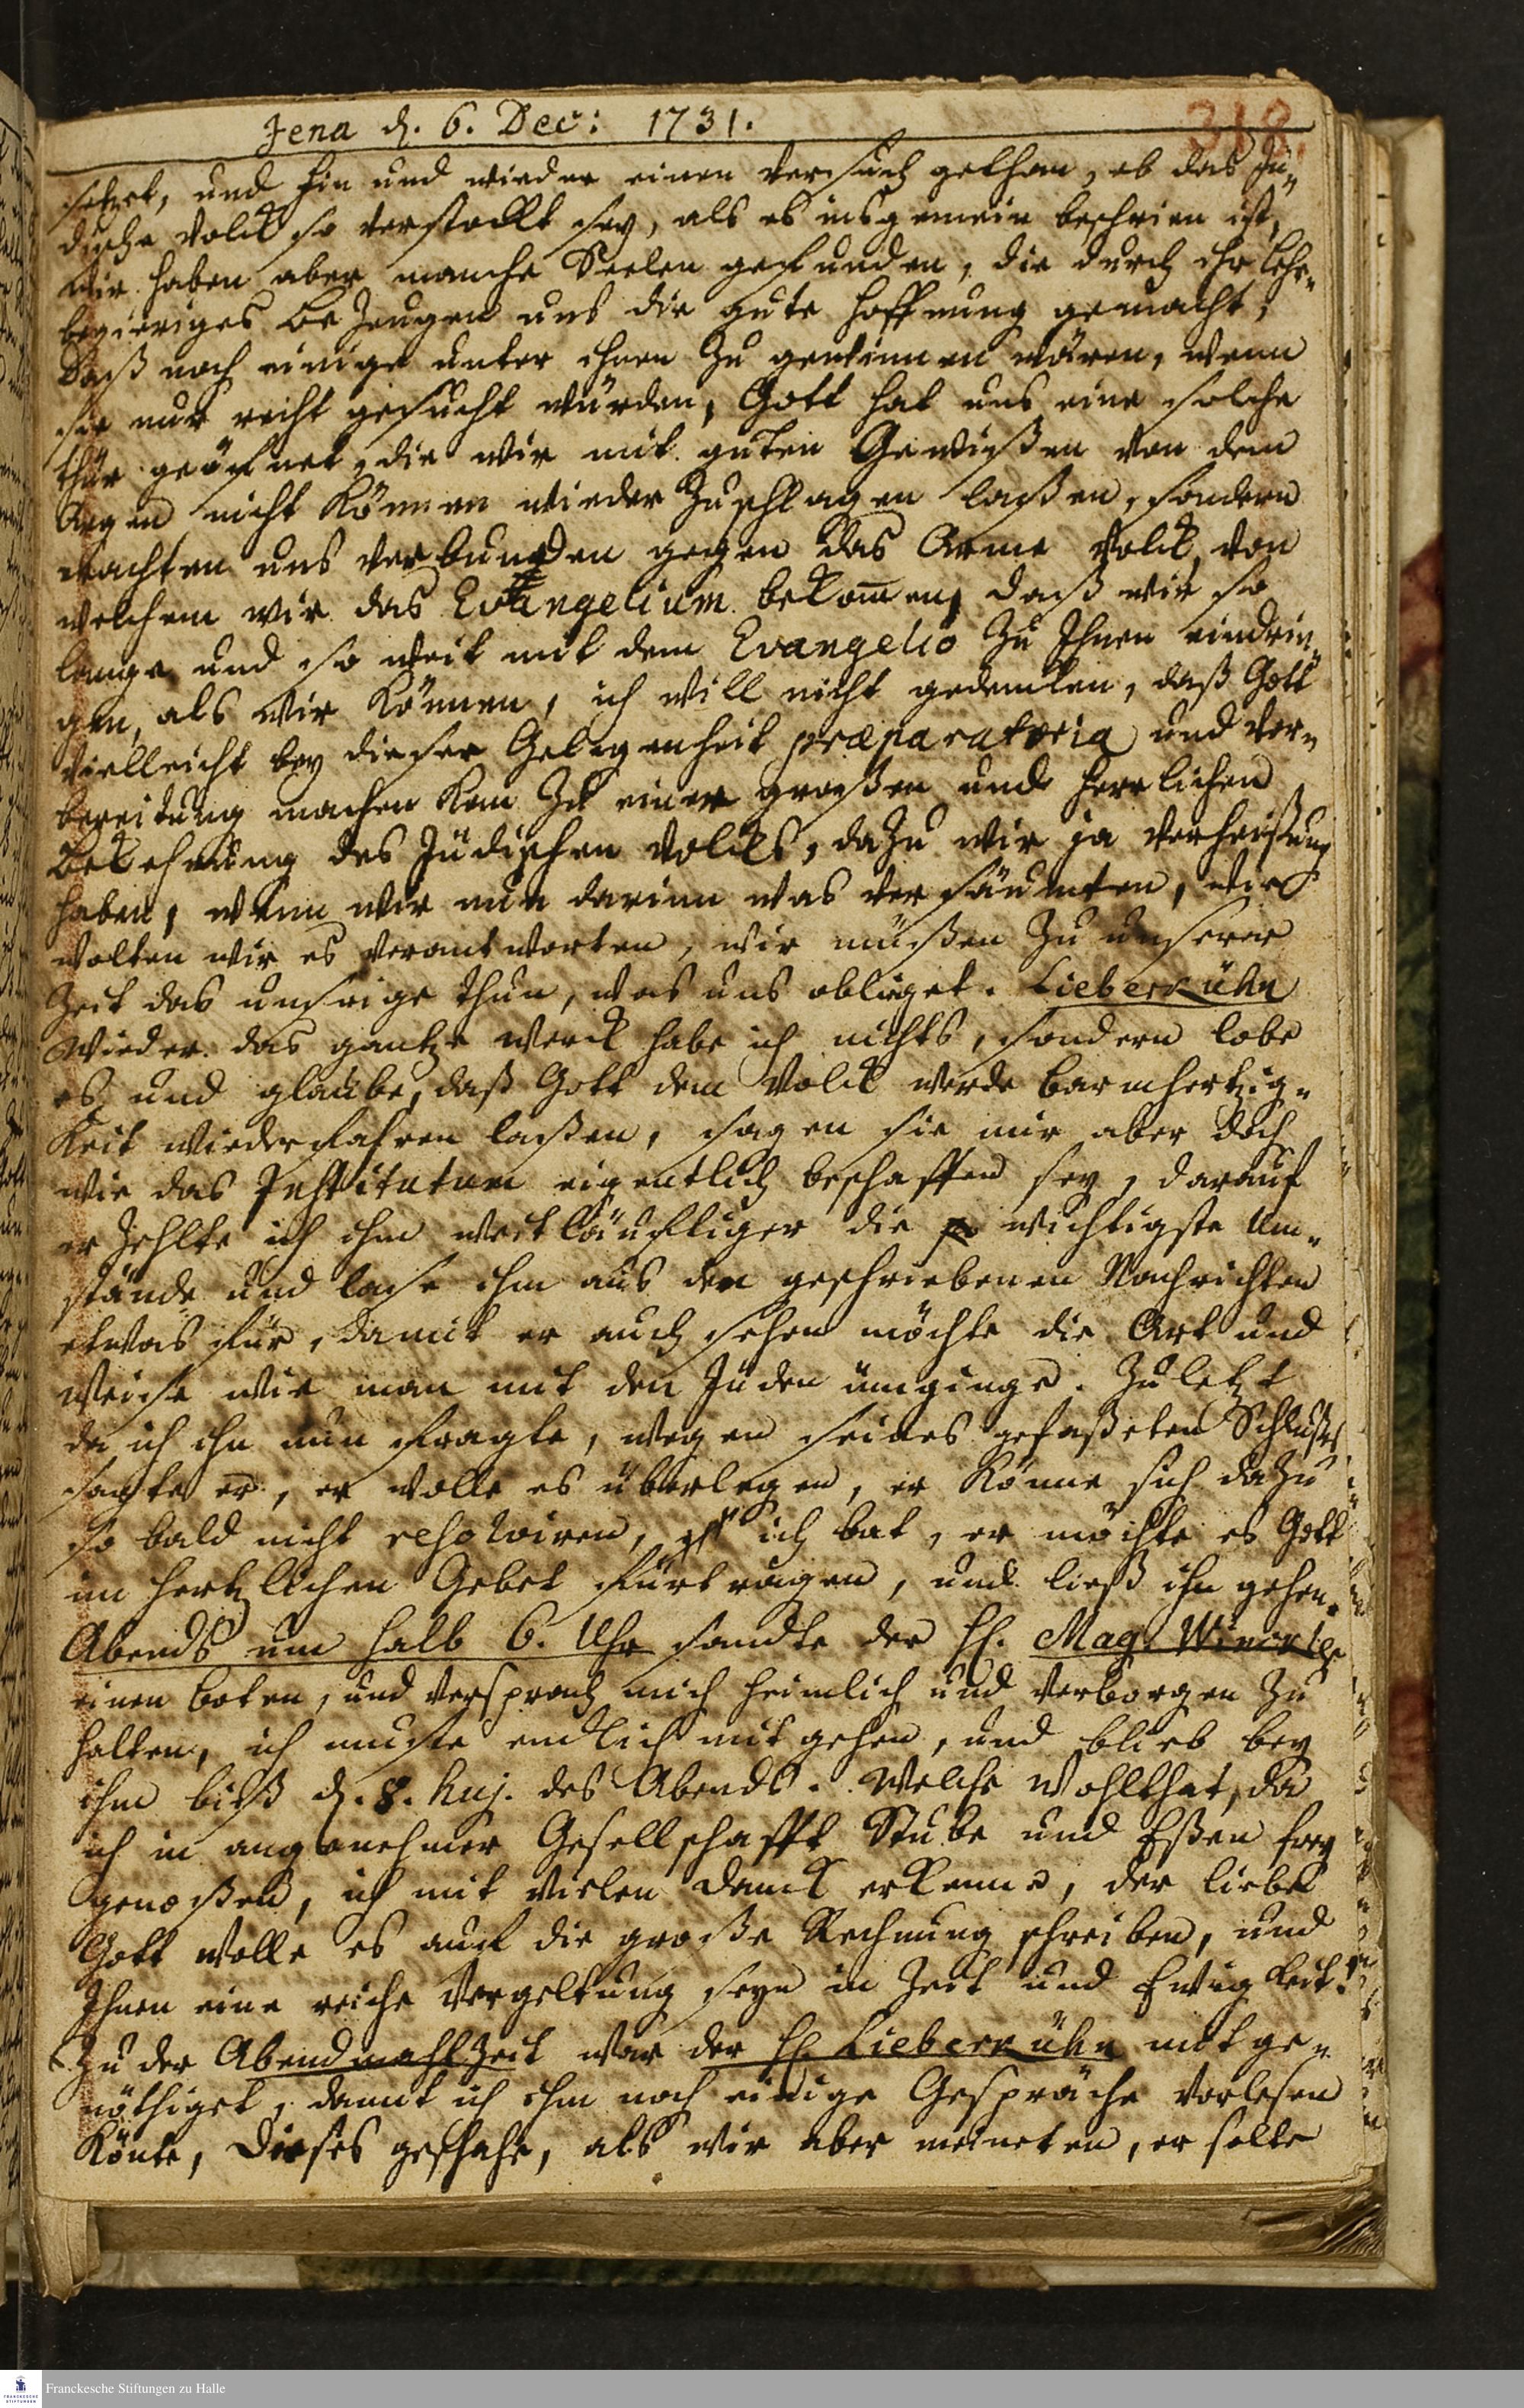 Jena d. 6. Dec: 1731.
318.
setzet, und hin und wieder einen Versuch gethan, ob das Jü-
dische Volck so verstockt sey, als es insgemein beschrien ist,
wir haben aber manche Seelen gefunden, die durch ihr lehr-
begieriges Bezeugen uns die gute Hoffnung gemacht,
daß noch einige unter ihnen zu gewinnen wären, wenn
sie nur recht gesucht würden, Gott hat uns eine solche
Thür geöfnet, die wir mit guten Gewißen von dem
Argen nicht können wieder zuschlagen laßen, sondern
achten uns verbunden gegen das Arme Volck, von
welchem wir das Evangelium bekom̄en, daß wir so
lange und so weit mit dem Evangelio zu Ihnen eindrin-
gen, als wir können, ich will nicht gedencken, daß Gott
vielleicht bey dieser Gelegenheit præparatoria und Vor-
bereitung machen kan zu einer großen und herrlichen
Bekehrung des Jüdischen Volcks, dazu wir ja Verheißung
haben, wenn wir nun darinn was versäumten, wie
wolten wir es verantworten, wir müßen zu unserer
Zeit das unsrige thun, was uns oblieget. Lieberkühn
Wieder das gantze Werck habe ich nichts, sondern lobe
es und glaube, daß Gott dem Volck werde Barmhertzig-
keit wiederfahren laßen, sagen sie mir aber doch
wie das Institutum eigentlich beschaffen sey, darauf
erzehlte ich ihm weitläufftiger die wichtigste Um-
stände und lase ihm aus den geschriebenen Nachrichten
etwas für, damit er auch sehen möchte die Art und
Weise wie man mit den Juden ümginge. Zuletzt
da ich ihn nun fragte, wegen seines gefaßeten Schlußes
sagte er, er wolle es überlegen, er könne sich dazu
so bald nicht resolviren, ich bat, er möchte es Gott
im hertzlichen Gebet fürtragen, und ließ ihn gehen.
Abends um halb 6. Uhr sandte der H. Mag.
einen boten, und versprach mich heimlich und verborgen zu
halten, ich muste endlich mit gehen, und blieb bey
ihm biß d. 8. huj. des Abends. Welche Wohlthat, da
ich in angenehmer Gesellschafft Stube und Eßen frey
genoßen, ich mit vielen Danck erkenne, der liebe
Gott wolle es auf die große Rechnung schreiben, und
Ihnen eine reiche Vergeltung seyn in Zeit und Ewigkeit!
Zu der Abendmahlzeit war der H. Lieberkühn mit ge-
nöthiget, damit ich ihm noch einige Gespräche vorlesen
könte, Dieses geschahe, als wir aber meineten, er solte
Franckesche Stiftungen zu Halle